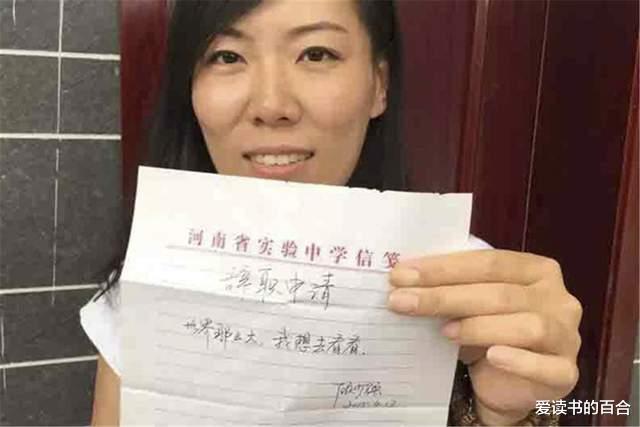 河南省实验中学信笺
辞职申请
世界那么大，我想去看看。
爱读书的百合